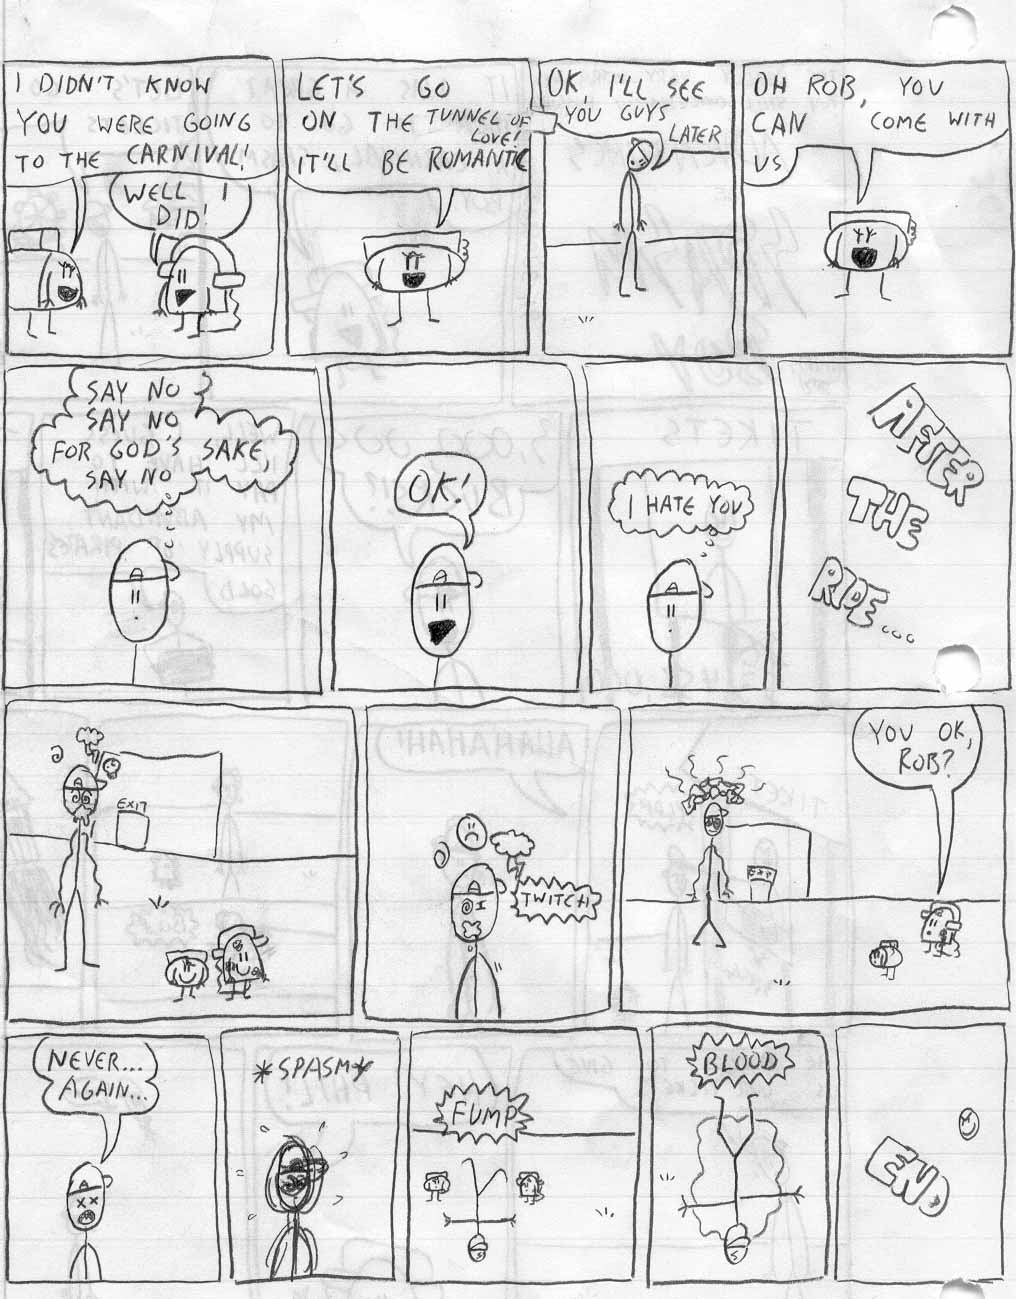 I DIDN'T KNOW
YOU WERE GOING
TO THE CARNIVAL!
WELL I
DID!
LET'S GO
ON THE TUNNEL OF
LOVE!
IT'LL BE ROMANTIC
OK, I'LL SEE
YOU GUYS
LATER
OH ROB, YOU
CAN COME WITH
US
SAY NO
SAY NO
FOR GOD'S SAKE,
SAY NO
OK!
I HATE YOU
AFTER
THE
RIDE...
EXIT
TWITCH
EXIT
YOU OK,
ROB?
NEVER...
AGAIN...
*SPASM*
FUMP
BLOOD
END